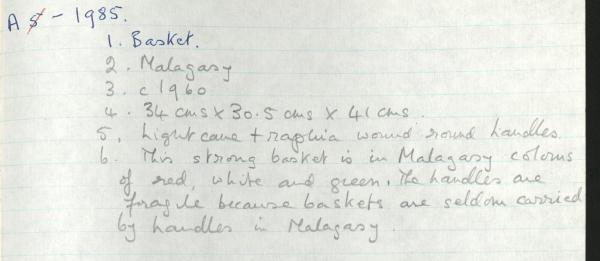 A - 1985.
1. Basket.
2. Malagasy
3. c 1960
4. 34 cms x 30.5 cms x 41 cms.
5. Light cane + raphia wound round handles.
6. This strong basket is in Malagasy colours
of red, white and green. The handles are
fragile because baskets are seldom carried
by handles in Malagasy.